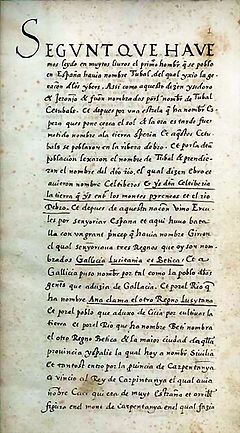 SEGUNT QUE HAVE
mos leydo en muytos livros el primo hombre q̄ se poblo
en España havia nombre Tubal, del qual yxio la ge
racion de los ybers. Assi como aquesto dizen ysidoro
& Jeronio & fuon nombrados por nombre de Tubal
Cetubale. Et depues por una estrela q̄ ha nombre
pero ques pone cerca el sol & la ora es tarde fue
metido nombre ala tierra Speria Et aq̄stos Cetu
bals se poblaron en la ribera debro. Et por la dita
poblacion lexaron el nombre de Tubal & prendie
ron el nombre del rio, el qual dizen Ebro et
avieron nombre Celtiberos & ye dita Celtiberia
la tierra q̄ ye entre los montes pyreneos et el rio
Debro. Et depues de aquesta nacon vino Ercu
les por senyoriar España et aqui huvo bata
lla con un grant princep q̄ havia nombre Girion
el qual senyoriava tres Regnos que oy son nom
brados Gallicia Lusitania et Betica. Et a
Gallicia puso nombre por tal como la poblo dlas
gents que aduzia de Gallacia. Et por el Rio q̄
ha nombre Ana clama el otro Regno Lusytana
Et por el poblo que aduxo de por cultivar la
tierra et por el Rio que ha nombre Beti nombra
el otro Regno Betica & la mayor ciudad daq̄lla
provincia yspalis la qual hoy a nombre Sivilia
Et tantost entro por la provincia de Carpentanya
& vincio al Rey de Carpentanya el qual avia
nombre Caci que era de muy estranio et orrible
figura en el mont de Carpentanya en el qual fazia